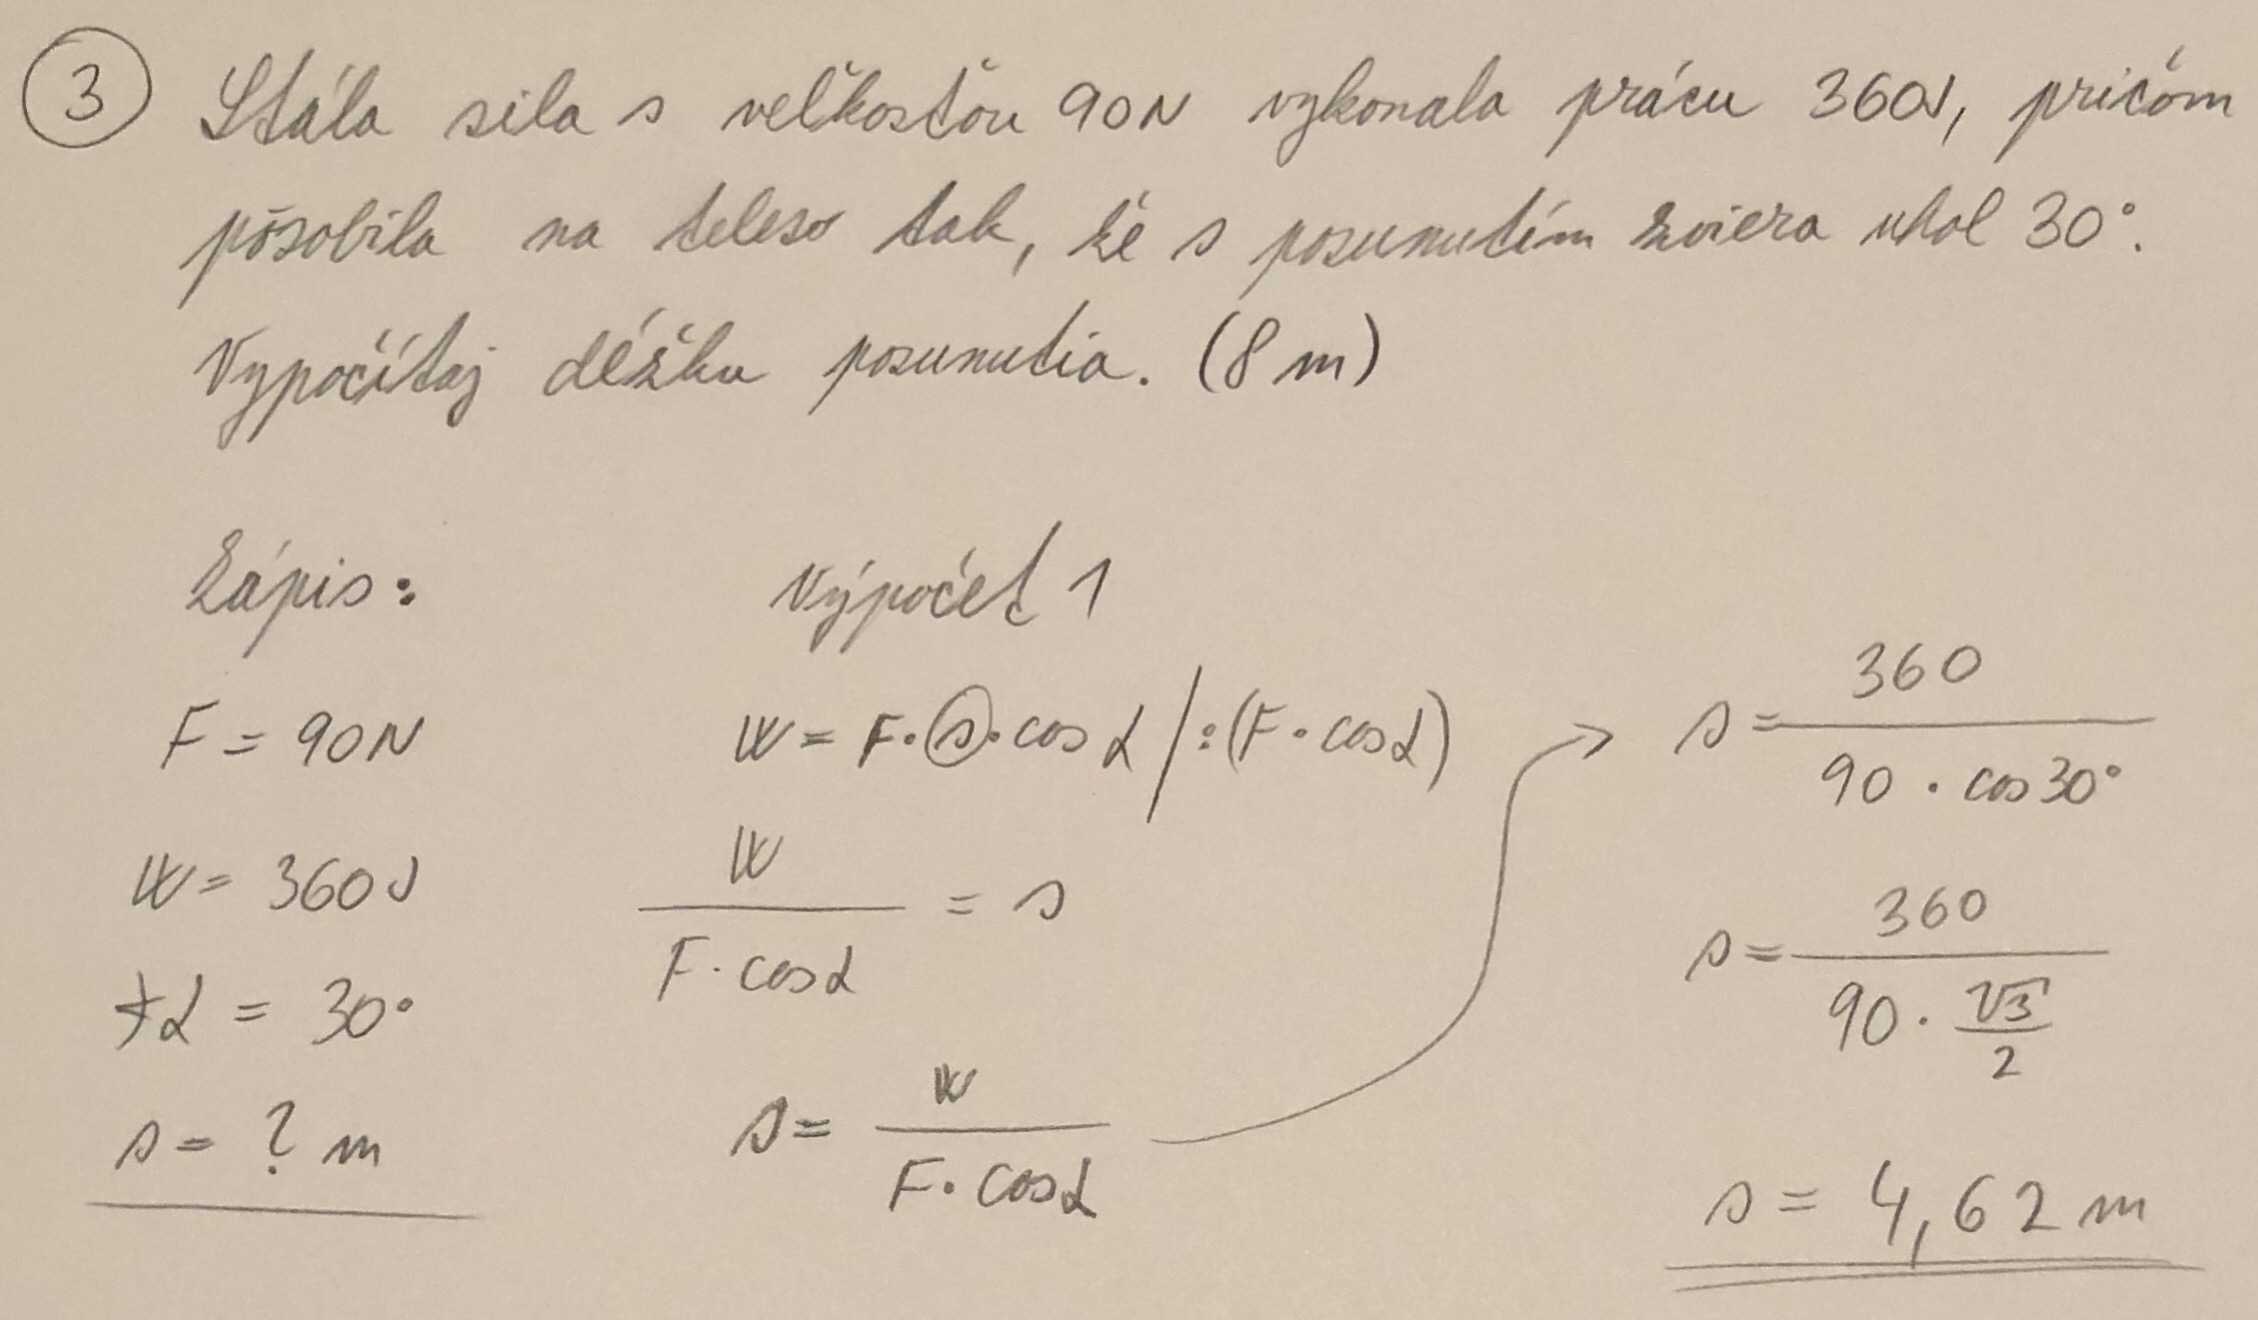 3 Stála sila s veľkosťou 90N vykonala prácu 360J, pričom
pôsobila na teleso tak, že s posunutím zviera uhol 30°.
Vypočítaj dĺžku posunutia. (8 m)
Zápis:
F = 90N
W = 360J
∢α = 30°
s = ? m
Výpočet 1
W = F · s · cos α / : (F · cos α)
W / (F · cos α) = s
s = W / (F · cos α)
s = 360 / (90 · cos 30°)
s = 360 / (90 · √3/2)
s = 4,62 m